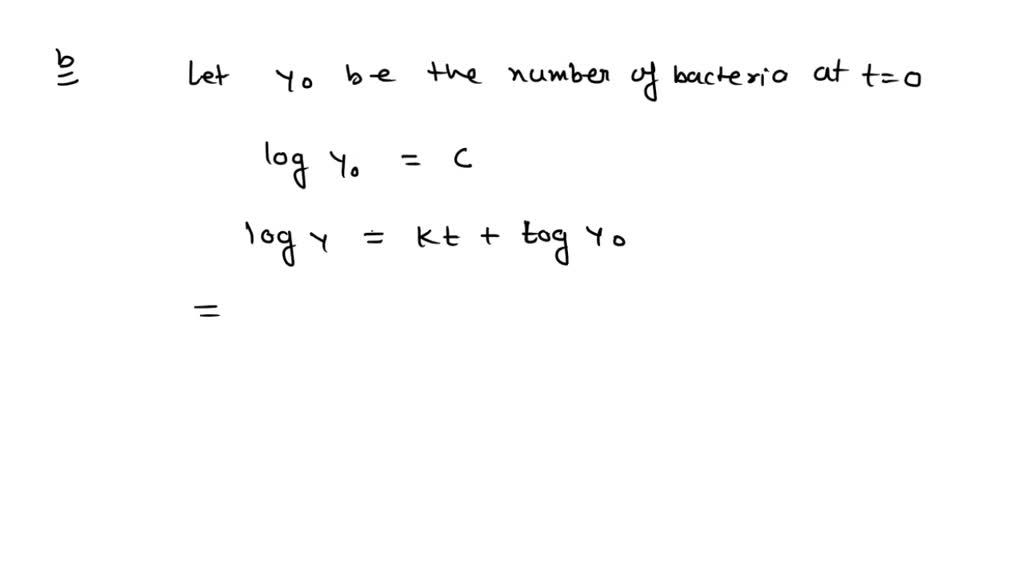 b Let y₀ be the number of bacteria at t=0
log y₀ = c
log y = kt + log y₀
=